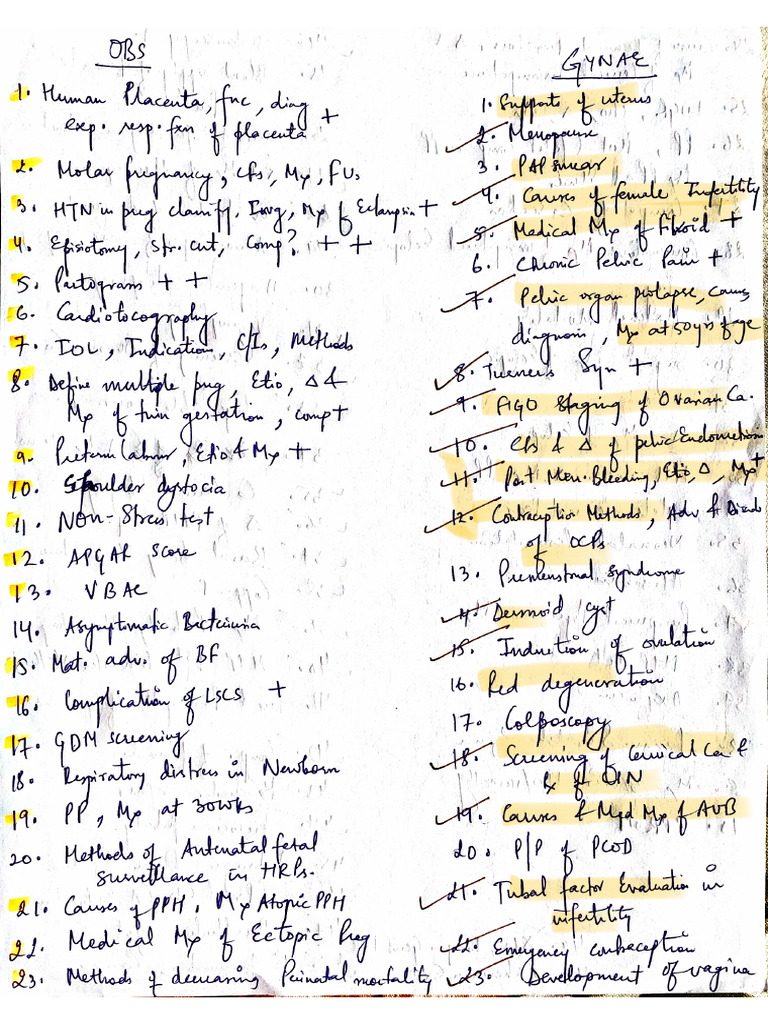 OBS
1. Human Placenta, fnc, diag
exp. resp. fxn of placenta +
2. Molar pregnancy, cfs, Mx, FUs
3. HTN in preg classify, Invg, Mx of Eclampsia +
4. Episiotomy, str. cut, Comp? + +
5. Partogram + +
6. Cardiotocography
7. IOL, Indication, C/Is, Methods
8. Define multiple preg, Etio, Δ &
Mx of twin gestation, comp +
9. Preterm labour, Etio & Mx +
10. Shoulder dystocia
11. Non-Stress test
12. APGAR Score
13. VBAC
14. Asymptomatic Bacteriuria
15. Mat. adv. of BF
16. Complication of LSCS +
17. GDM screening
18. Respiratory distress in Newborn
19. PP, Mx at 30wks
20. Methods of Antenatal fetal
surveillance in HRPs.
21. Causes of PPH, Mx Atopic PPH
22. Medical Mx of Ectopic Preg
23. Methods of decreasing Perinatal mortality
GYNAE
1. Supports of uterus
2. Menopause
3. PAP smear
4. Causes of female Infertility
5. Medical Mx of Fibroid +
6. Chronic Pelvic Pain +
7. Pelvic organ prolapse, Causes,
diagnosis, Mx at 50 yrs of age
8. Turners Syn +
9. FIGO Staging of Ovarian Ca.
10. Cfs & Δ of pelvic Endometriosis
11. Post Men. Bleeding, Etio, Δ, Mx +
12. Contraception Methods, Adv & Disadv
of OCPs
13. Premenstrual syndrome
14. Dermoid cyst
15. Induction of ovulation
16. Red degeneration
17. Colposcopy
18. Screening of Cervical Ca &
Rx of CIN
19. Causes & Med Mx of AUB
20. P/P of PCOD
21. Tubal factor Evaluation in
infertility
22. Emergency contraception
23. Development of vagina